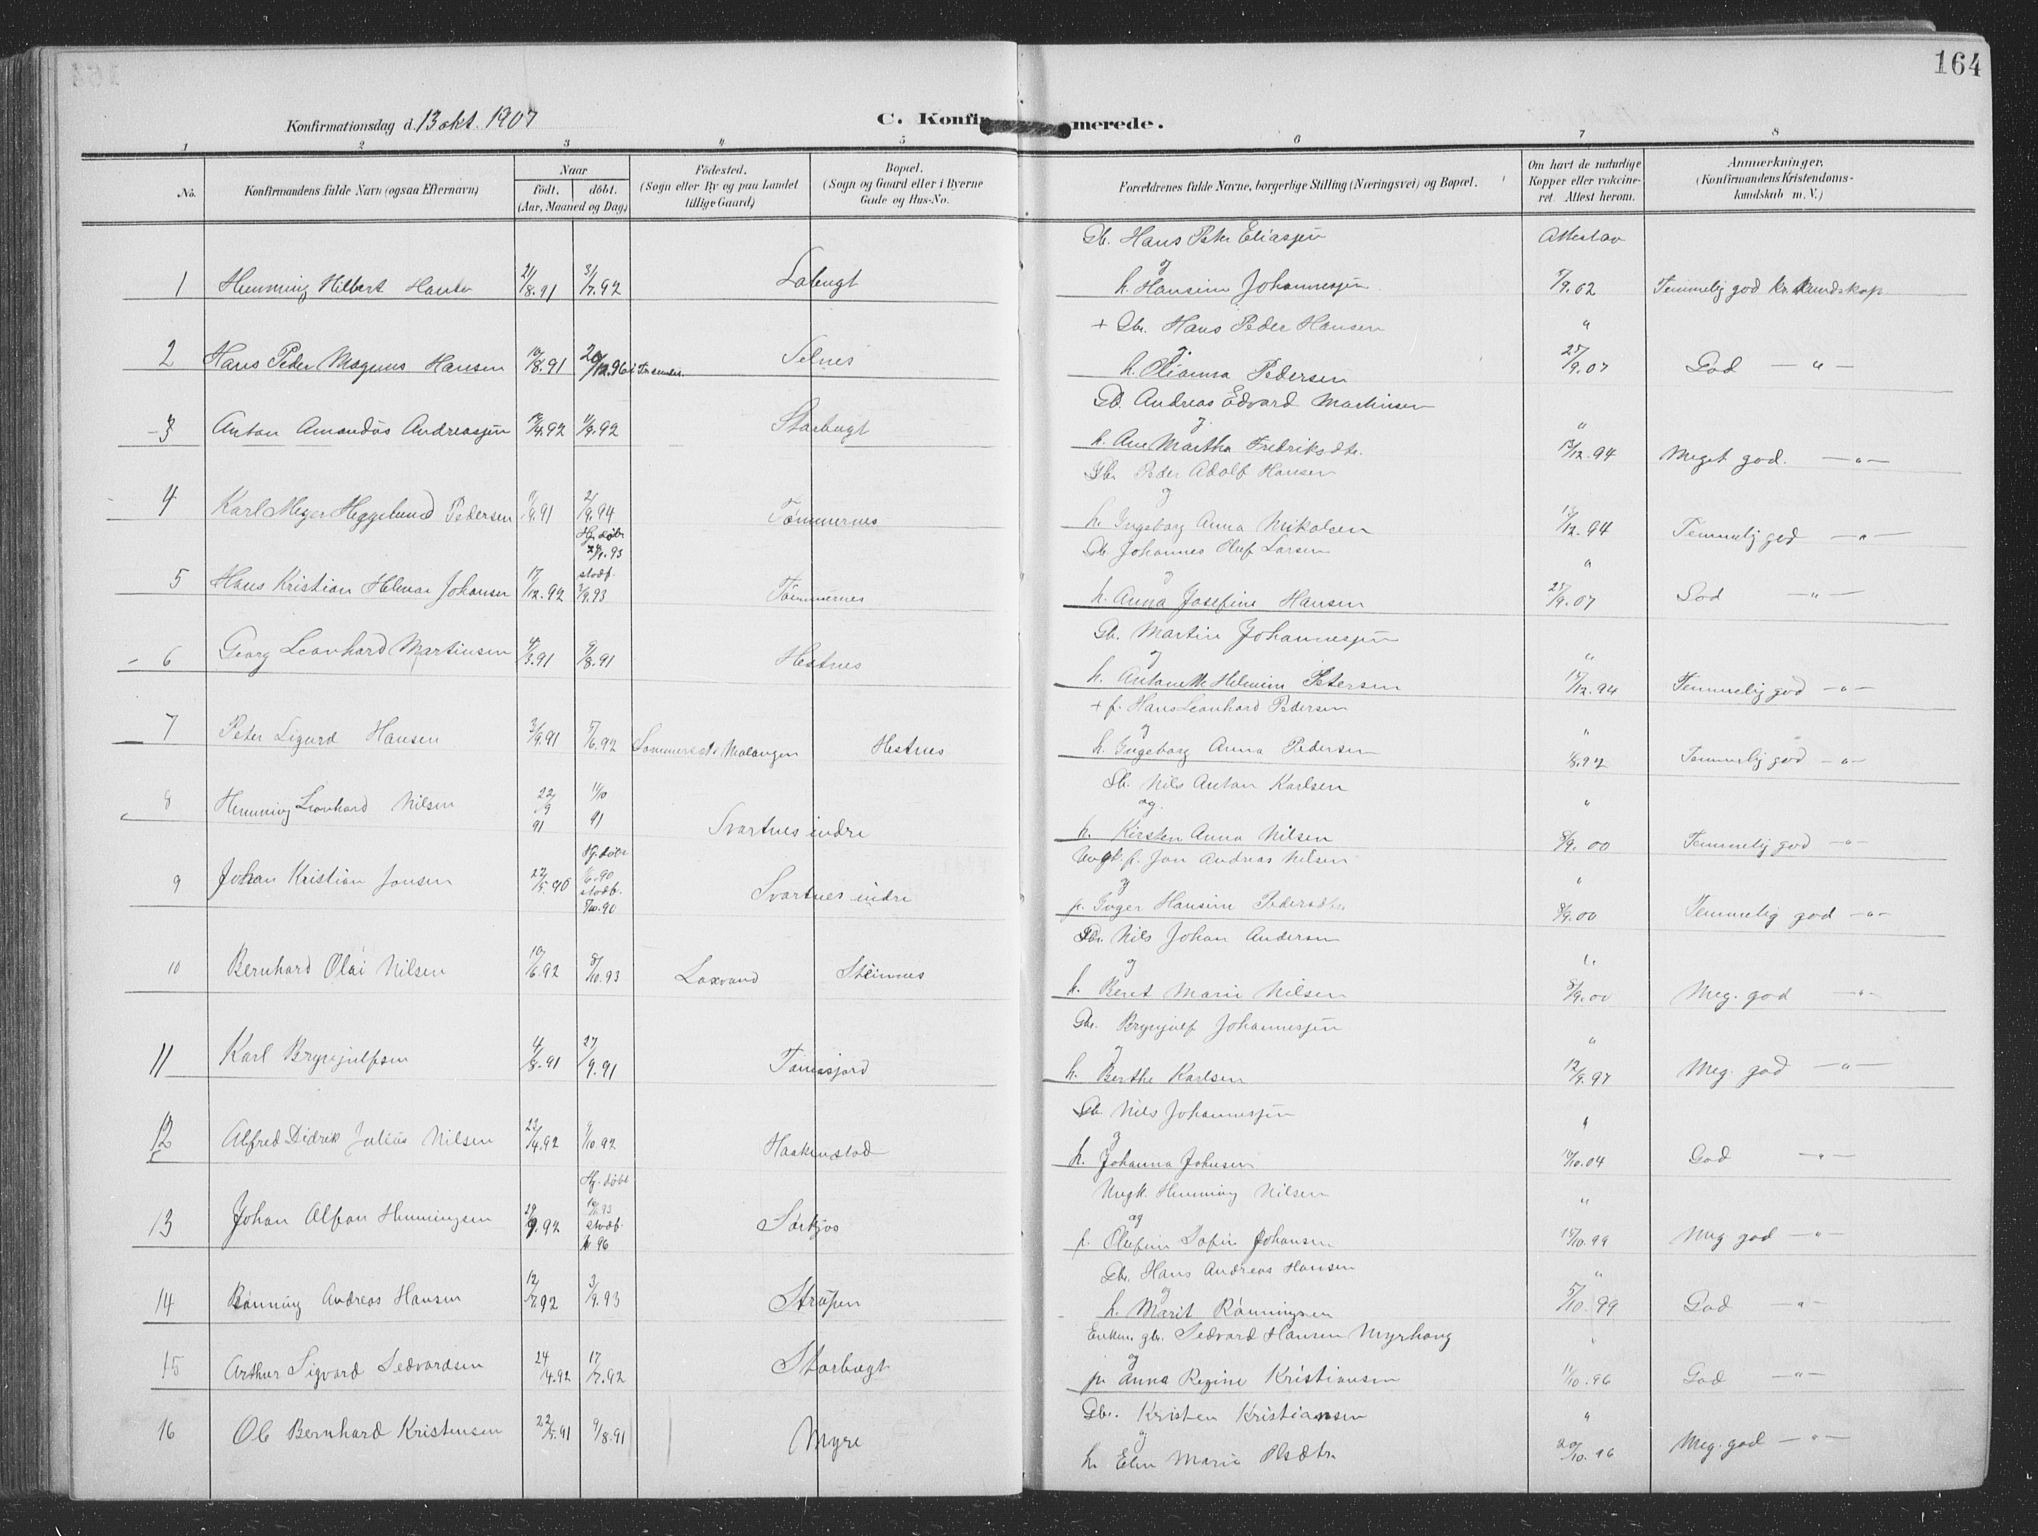 164
Konfirmationsdag d. 13 okt. 1907
C. Konfir merede.
1 2 3 4 5 6 7 8
No.
Konfirmandens fulde Navn (ogsaa Efternavn)
Naar
födt. döbt.
(Aar, Maaned og Dag)
Födested.
(Sogn eller By og paa Landet
tillige Gaard)
Bopæl.
(Sogn og Gaard eller i Byerne
Gade og Hus-No.
Forældrenes fulde Navne, borgerlige Stilling (Næringsvei) og Bopæl.
Om havt de naturlige
Kopper eller vakcine-
ret. Attest herom.
Anmerkninger,
(Konfirmandens Kristendoms-
kundskab m. V.)
Gb. Hans Peter Eliassen
og
1 Henning Hilbert 21/8.91 3/7.92 h. Hansine Johannessen 9.02 Temmelig god kr. kundskap
+ Gbr. Hans Peder Hansen "
2 Hans Peder Magnus Hansen 10/8.91 20/12.96 Selnes h. Olianna Pedersen 25/9.07 God — " —
Gb. Andreas Edvard Martinsen "
3 Anton Amandus Andreassen 4.92 92 Storbugt h. Ane Martha Fredriksdtr. 13/12.94 Meget god. — " —
Gbr. Peder Adolf Hansen
og
4 Karl Meyer Heggelund Pedersen 9.91 2/9.94 Tömmernes h. Ingeborg Anna Mikalsen 12.94 Temmelig god — " —
Hj. döbt
93
Gb. Johannes Oluf Larsen "
og
5 Hans Kristian Helmar Johansen 17/12.92 stadf. 93 Tömmernes h. Anna Josefine Hansen 25/9.07 God — " —
Gb. Martin Johannessen "
og
6 Georg Leonhard Martinsen 3.91 9/8.91 Hestnes h. Petersen 12.94 Temmelig god — " —
+ f. Hans Leonhard Pedersen "
og
7 Peter Sigurd Hansen 3/9.91 5/6.92 Malangen Hestnes h. Ingeborg Anna Pedersen 8.92 Temmelig god — " —
Gb. Nils Anton Karlsen "
og.
8 Henning Leonhard Nilsen 22/9 91 11/10 91 Svartnes indre h. Kirsten Anna Nilsen 8/9.00 Temmelig god — " —
Hj. döbt
Ungk. f. Jon Andreas Nilsen "
og
9 Johan Kristian Jonsen 22/5.90 6.90 stadf. 8/10.90 Svartnes indre p. Inger Hansine Pedersdtr 8/9.00 Temmelig god — " —
Gbr. Nils Johan Andersen "
og
10 Bernhard Olai Nilsen 10/6.92 8/10.93 Laxvand Steinnes h. Beret Marie Nilsen 9.00 Meg. god — " —
Gbr. Brynjulf Johannessen "
og
11 Karl Brynjulfsen 4/8.91 27/9.91 Tomasjord h. Berthe Karlsen 12/9.97 Meg. god — " —
Gb. Nils Johannessen "
og
12 Alfred Didrik Julius Nilsen 23/4.92 9/10.92 Haakenstad h. Johanna Johnsen 10.04 God — " —
Hj. döbt
Ungk. Henning Nilsen "
og
13 Johan Alfon Henningsen 9.92 93 stadf. 96 Sörkjos p. Olufine Dofin Johansen 10.99 Meg god — " —
Gbr. Hans Andreas Hansen "
og
14 Rönning Andreas Hansen 12/7.92 3/9.93 Strupen h. Marit Rönningsen 5/10.99 God — " —
Enkem. gbr. Sedvard Hansen Myrhaug "
og
15 Arthur Sigvard Sedvardsen 24/4.92 17/7.92 Storbugt p. Anna Regine Kristiansen 11/10.96 God — " —
Gbr. Kristen Kristiansen "
og
16 Ole Bernhard Kristensen 22/5.91 9/8.91 Myre h. Elen Marie Olsdtr. 20/10.96 Meg. god — " —